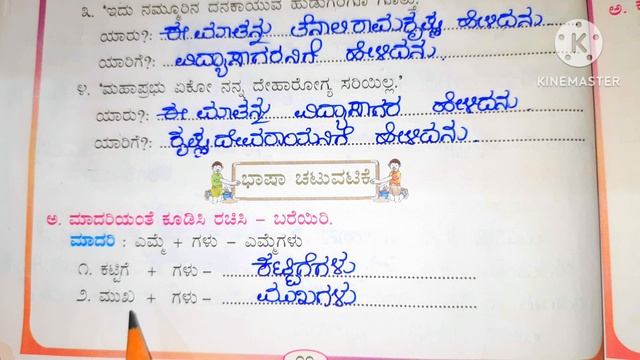 ೩. 'ಇದು ನಮ್ಮೂರಿನ ದನಕಾಯುವ ಹುಡುಗರಿಗೂ ಗೊತ್ತು.'
ಯಾರು?: ಈ ಮಾತನ್ನು ತೆನಾಲಿ ರಾಮಕೃಷ್ಣ ಹೇಳಿದನು.
ಯಾರಿಗೆ?: ವಿದ್ಯಾಸಾಗರನಿಗೆ ಹೇಳಿದನು.
೪. 'ಮಹಾಪ್ರಭು ಏಕೋ ನನ್ನ ದೇಹಾರೋಗ್ಯ ಸರಿಯಿಲ್ಲ.'
ಯಾರು?: ಈ ಮಾತನ್ನು ವಿದ್ಯಾಸಾಗರ ಹೇಳಿದನು.
ಯಾರಿಗೆ?: ಕೃಷ್ಣದೇವರಾಯನಿಗೆ ಹೇಳಿದನು.
ಭಾಷಾ ಚಟುವಟಿಕೆ
ಅ. ಮಾದರಿಯಂತೆ ಕೂಡಿಸಿ ರಚಿಸಿ – ಬರೆಯಿರಿ.
ಮಾದರಿ : ಎಮ್ಮೆ + ಗಳು – ಎಮ್ಮೆಗಳು
೧. ಕಟ್ಟಿಗೆ + ಗಳು – ಕಟ್ಟಿಗೆಗಳು
೨. ಮುಖ + ಗಳು – ಮುಖಗಳು
KINEMASTER